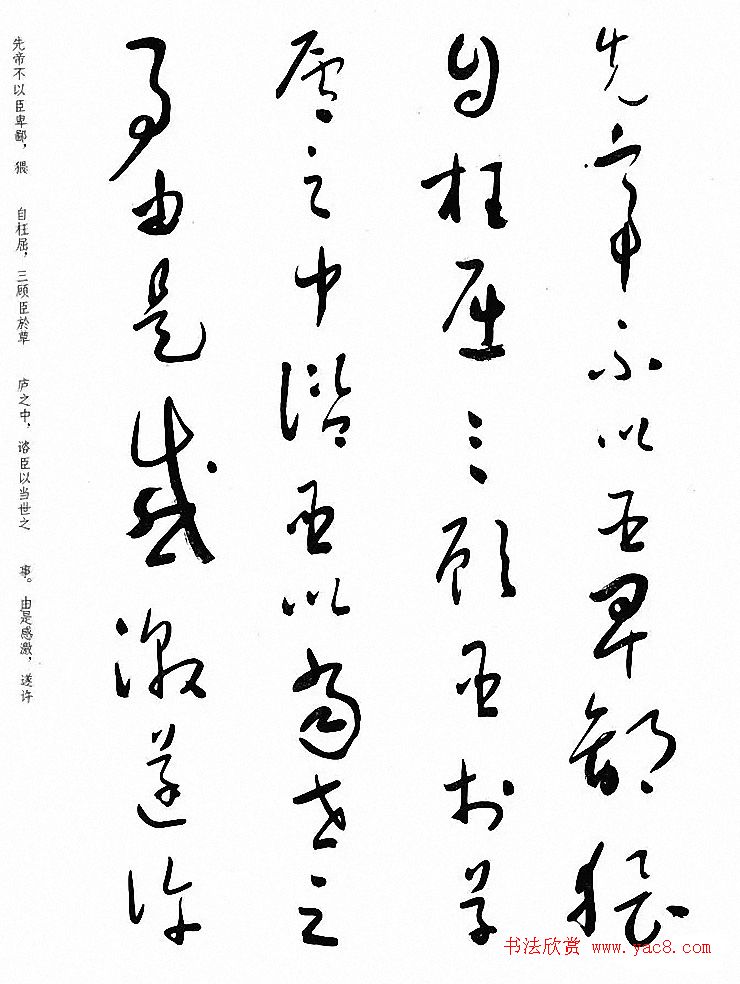 先帝不以臣卑鄙猥
自枉屈三顾臣於草
庐之中谘臣以当世之
事由是感激遂许
先帝不以臣卑鄙，猥 自枉屈，三顾臣於草 庐之中，谘臣以当世之 事。由是感激，遂许
书法欣赏 www.yac8.com